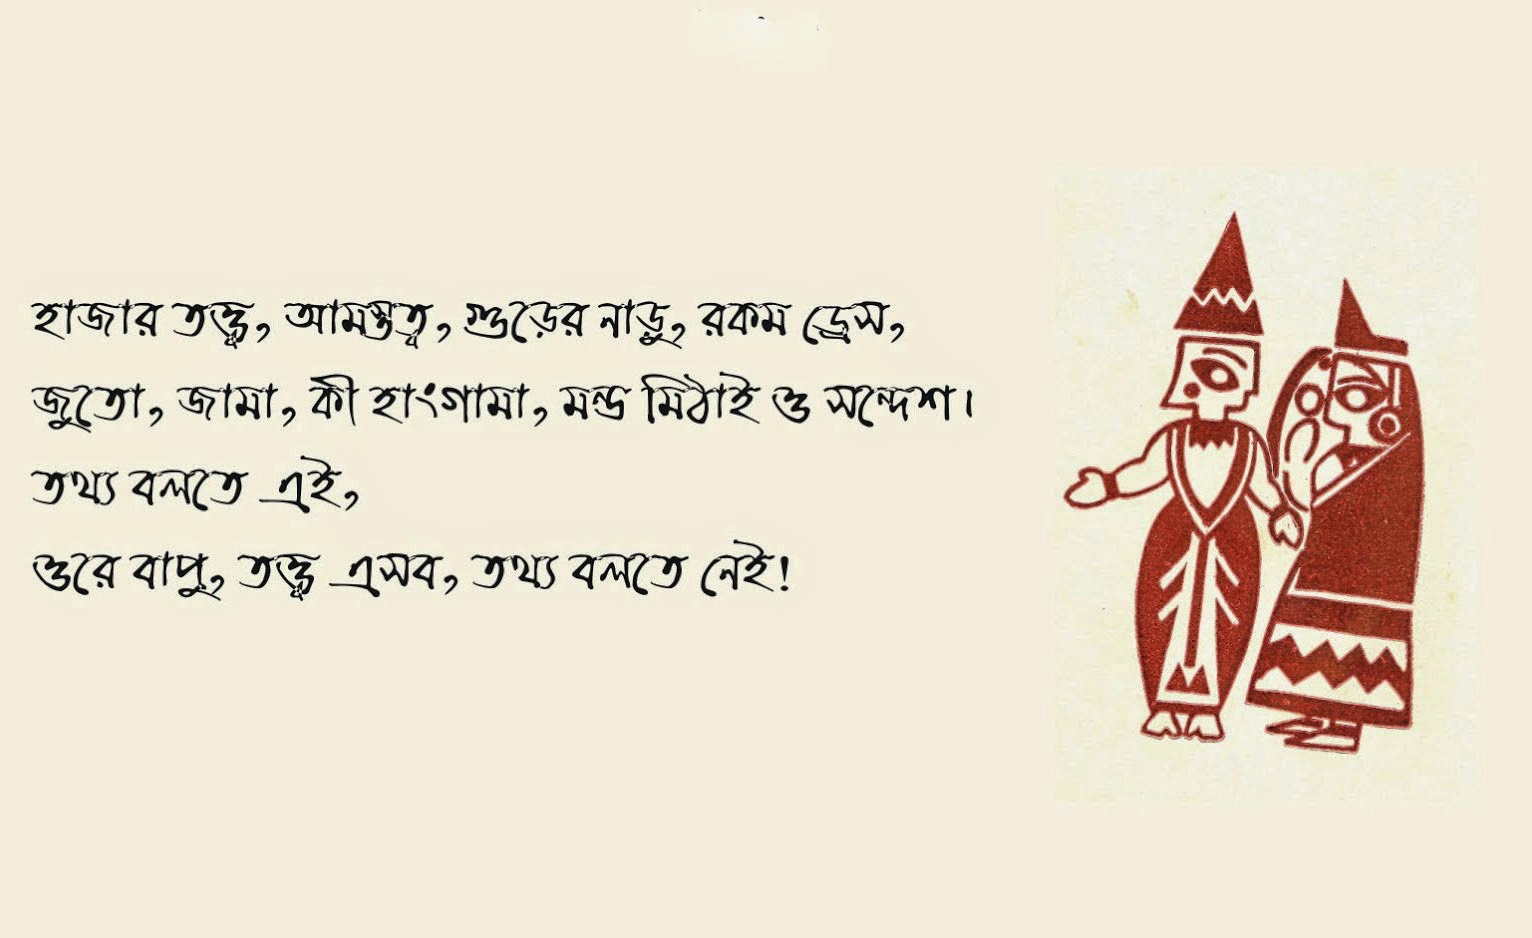 হাজার তত্ত্ব, আমসত্ত্ব, গুড়ের নাড়ু, রকম ড্রেস,
জুতো, জামা, কী হাংগামা, মন্ড মিঠাই ও সন্দেশ।
তথ্য বলতে এই,
ওরে বাপু, তত্ত্ব এসব, তথ্য বলতে নেই!